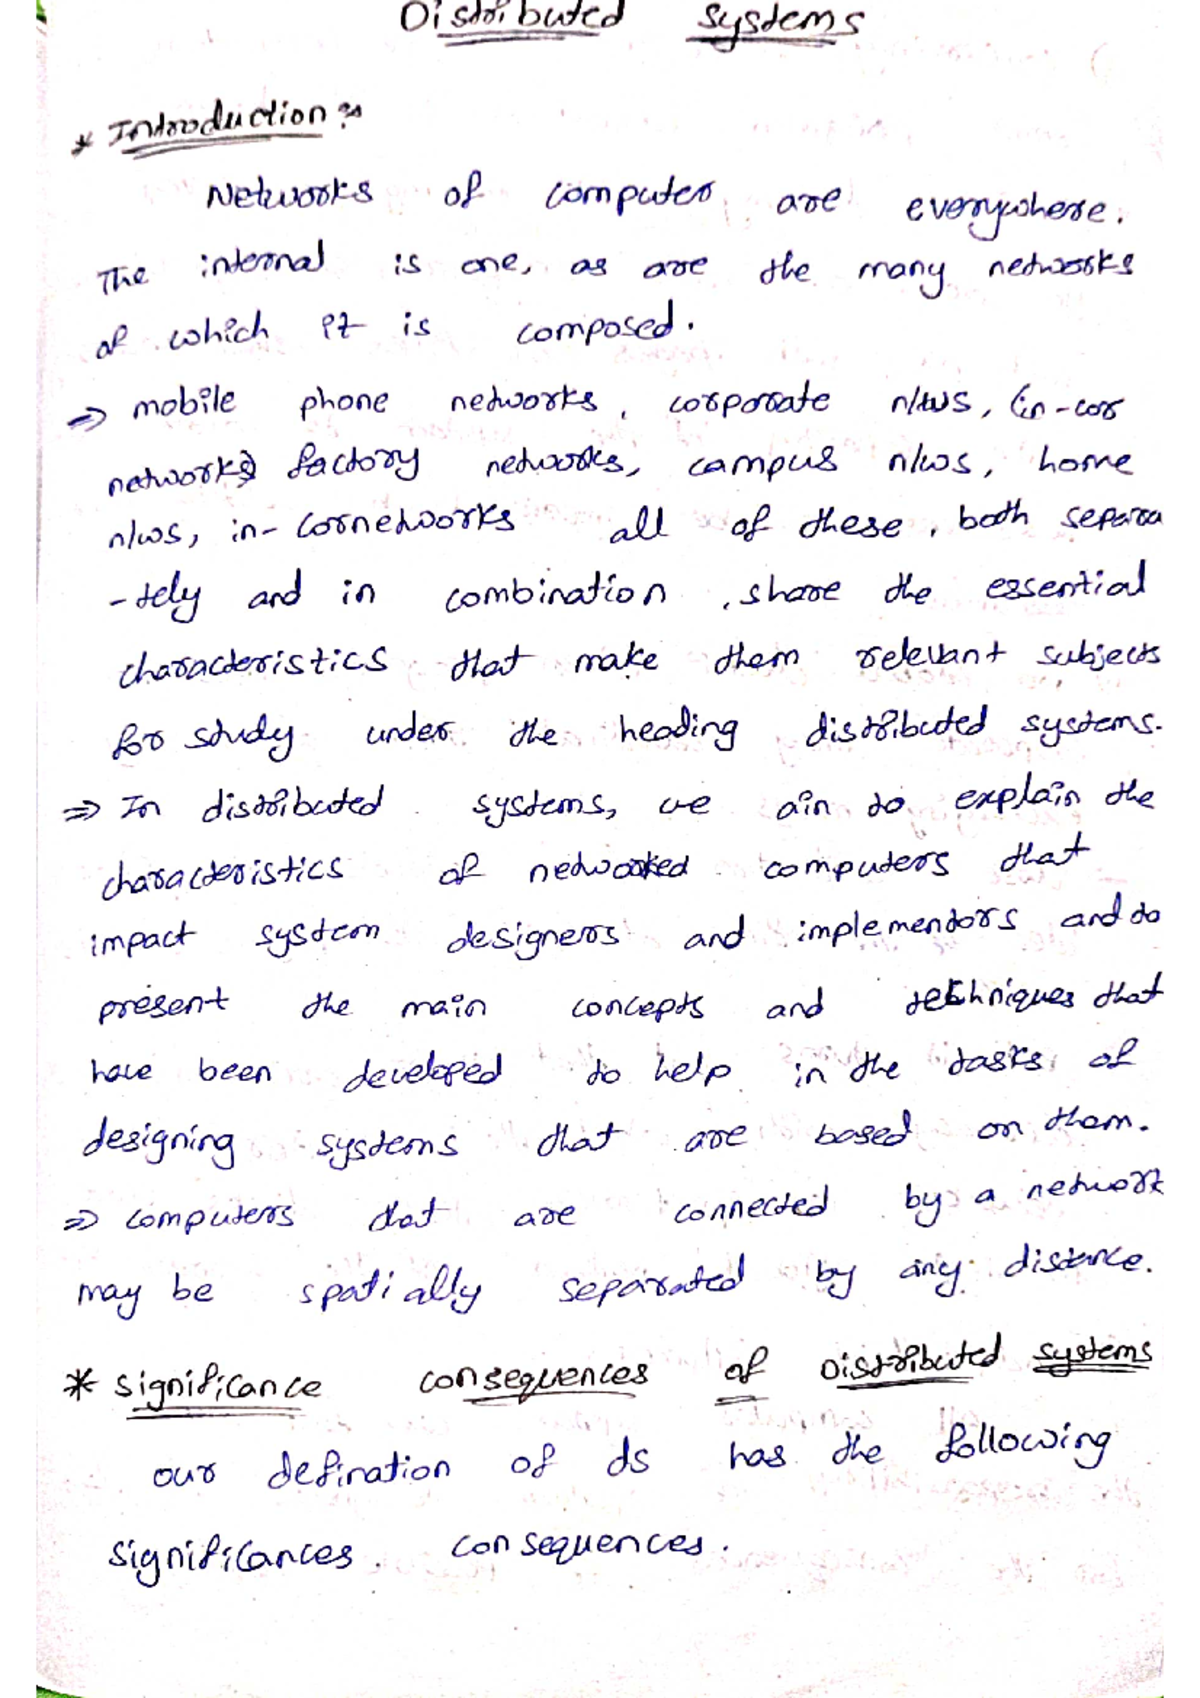 Distributed systems
* Introduction :-
Networks of computer are everywhere.
The internal is one, as are the many networks
of which it is composed.
⇒ mobile phone networks, corporate n/ws, (in-cor
networks) factory networks, campus n/ws, home
n/ws, in-cornetworks all of these, both separa
-tely and in combination, share the essential
characteristics that make them relevant subjects
for study under the heading distributed systems.
⇒ In distributed systems, we ain to explain the
characteristics of networked computers that
impact system designers and implementors and to
present the main concepts and techniques that
have been developed to help in the tasks of
designing systems that are based on them.
⇒ computers that are connected by a network
may be spatially separated by any distance.
* significance consequences of Distributed systems
our defination of ds has the following
significances consequences.